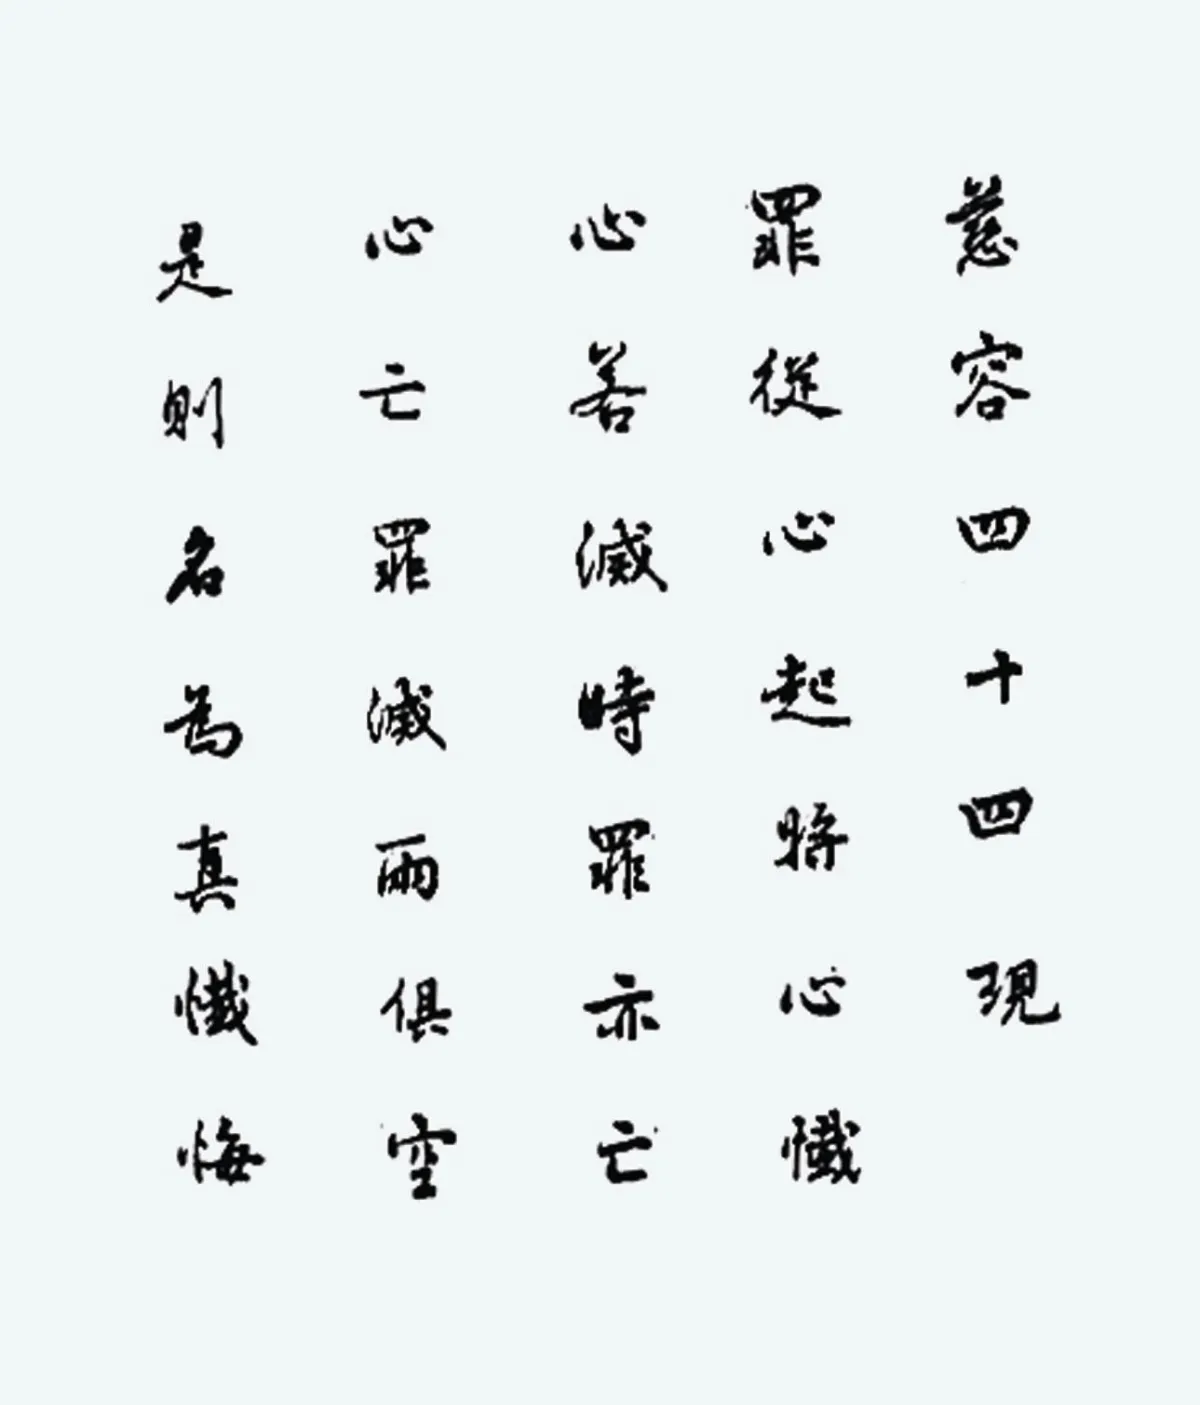 慈容四十四現
罪從心起將心懺
心若滅時罪亦亡
心亡罪滅兩俱空
是則名為真懺悔